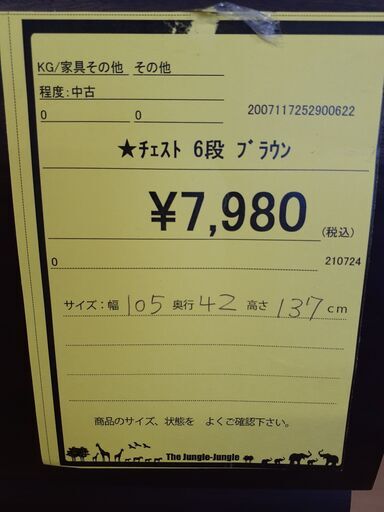 KG/家具その他 その他
程度:中古
0 0 2007117252900622
★チェスト 6段 ブラウン
¥7,980 (税込)
0 210724
サイズ:幅 105 奥行 42 高さ 137cm
商品のサイズ、状態を よくご確認下さい。
The Jungle-Jungle